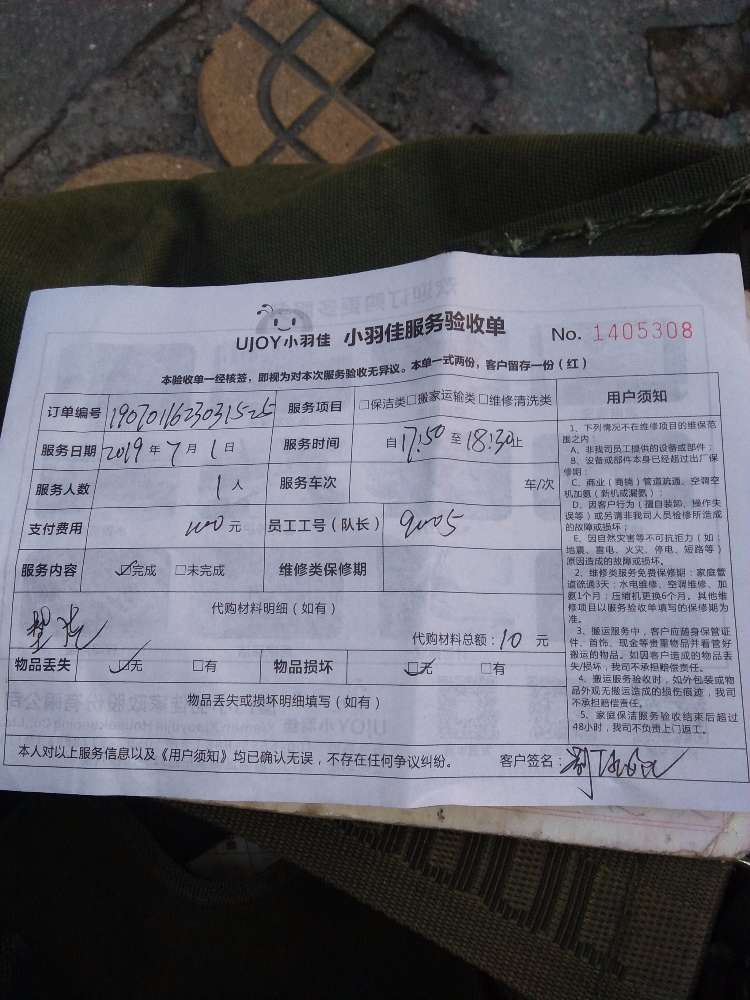 UJOY小羽佳 小羽佳服务验收单 No. 1405308
本验收单一经核签，即视为对本次服务验收无异议。本单一式两份，客户留存一份（红）
订单编号 1907011623031525 服务项目 □保洁类□搬家运输类□维修清洗类
服务日期 2019 年 7 月 1 日 服务时间 自 17:50 至 18:30止
服务人数 1 人 服务车次 车/次
支付费用 元 员工工号（队长） 9005
服务内容 ☑完成 □未完成 维修类保修期
代购材料明细（如有）
代购材料总额：10 元
物品丢失 ☑无 □有 物品损坏 ☑无 □有
物品丢失或损坏明细填写（如有）
本人对以上服务信息以及《用户须知》均已确认无误，不存在任何争议纠纷。 客户签名：
用户须知
1、下列情况不在维修项目的维保范
围之内：
A、非我司员工提供的设备或部件；
B、设备或部件本身已经超过出厂保
修期；
C、商业（商铺）管道疏通、空调空
机加氨（新机或漏氨）；
D、因客户行为（擅自装卸、操作失
误等）或另请非我司人员检修所造成
的故障或损坏；
E、因自然灾害等不可抗拒力（如：
地震、雷电、火灾、停电、短路等）
原因造成的故障或损坏。
2、维修类服务免费保修期：家庭管
道疏通3天；水电维修、空调维修、加
氨1个月；压缩机更换6个月。其他维
修项目以服务验收单填写的保修期为
准。
3、搬运服务中，客户应随身保管证
件、首饰、现金等贵重物品并看管好
搬运的物品。如因客户造成的物品丢
失/损坏，我司不承担赔偿责任。
4、搬运服务验收时，如外包装或物
品外观无搬运造成的损伤痕迹，我司
不承担赔偿责任。
5、家庭保洁服务验收结束后超过
48小时，我司不负责上门返工。